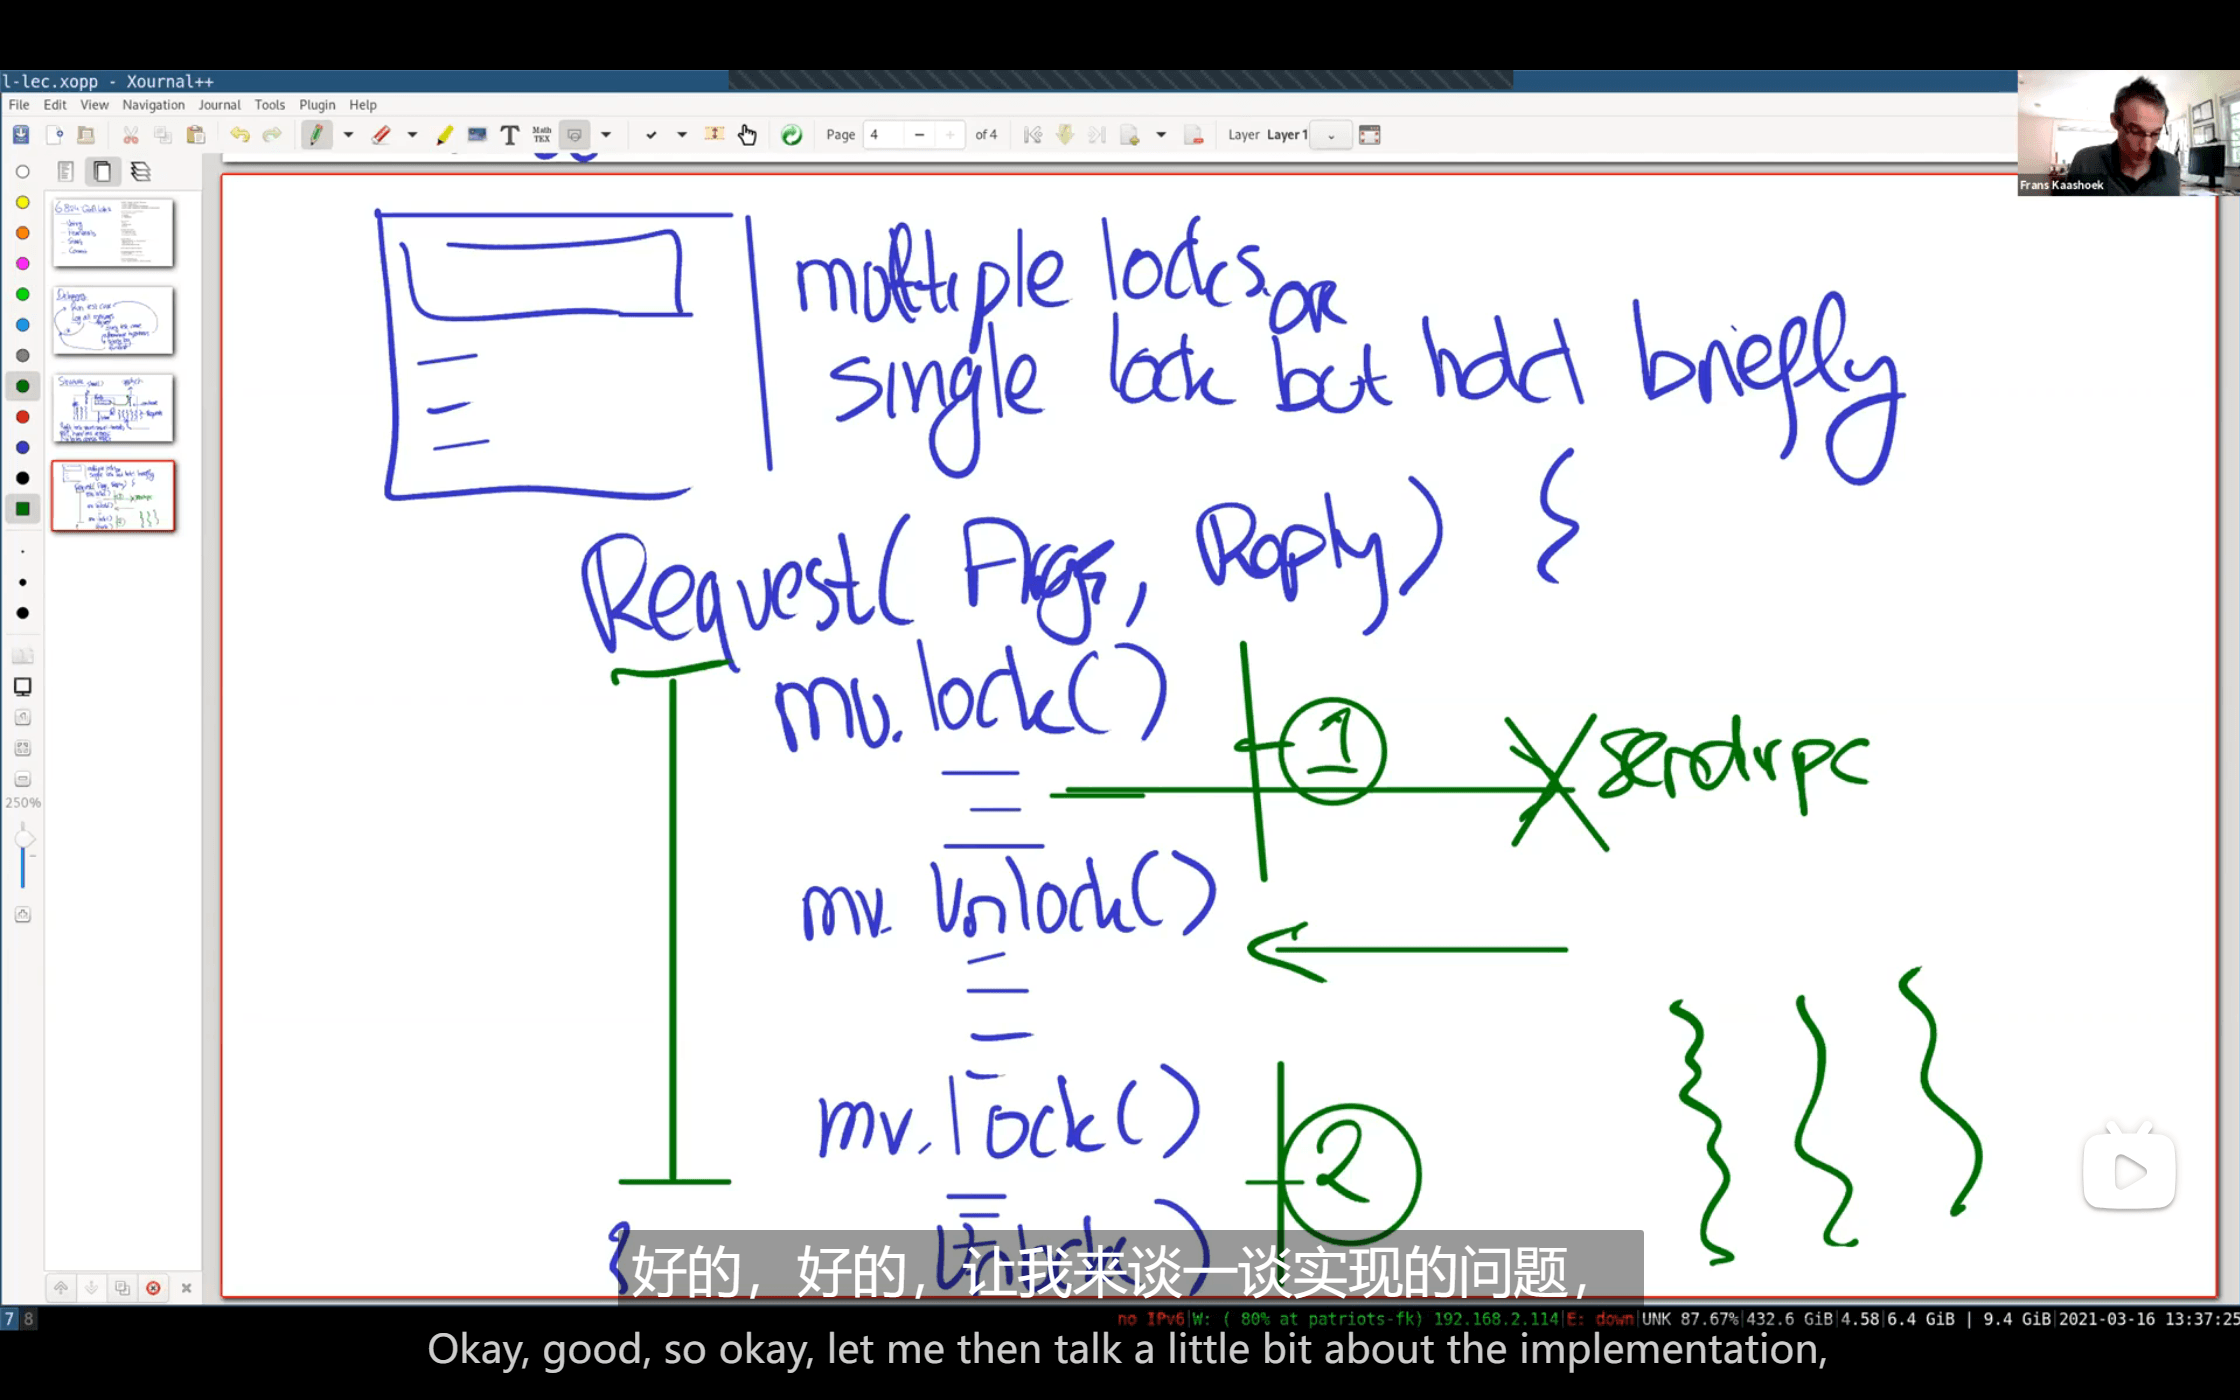 l-lec.xopp - Xournal++
File Edit View Navigation Journal Tools Plugin Help
T Math TEX Page 4 of 4 Layer Layer 1
Frans Kaashoek
250%
multiple locks or
single lock but hold briefly
Request( Args, Reply) {
mu.lock()
1
sendrpc
mu. Unlock()
mu.lock()
2
Unlock()
好的，好的，让我来谈一谈实现的问题，
7 8
no IPv6|W: ( 80% at patriots-fk) 192.168.2.114|E: down|UNK 87.67%|432.6 GiB|4.58|6.4 GiB | 9.4 GiB|2021-03-16 13:37:25
Okay, good, so okay, let me then talk a little bit about the implementation,